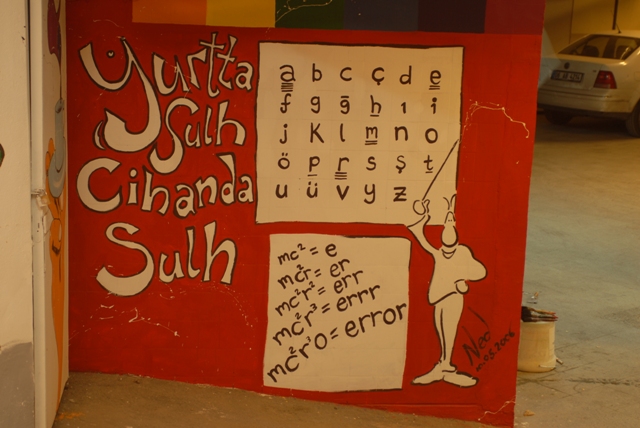 Yurtta
Sulh
Cihanda
Sulh
a b c ç d e
f g ğ h ı i
j K l m n o
ö p r s ş t
u ü v y z
mc² = e
mc²r = er
mc²r² = err
mc²r³ = errr
mc²r³o = error
05.2006